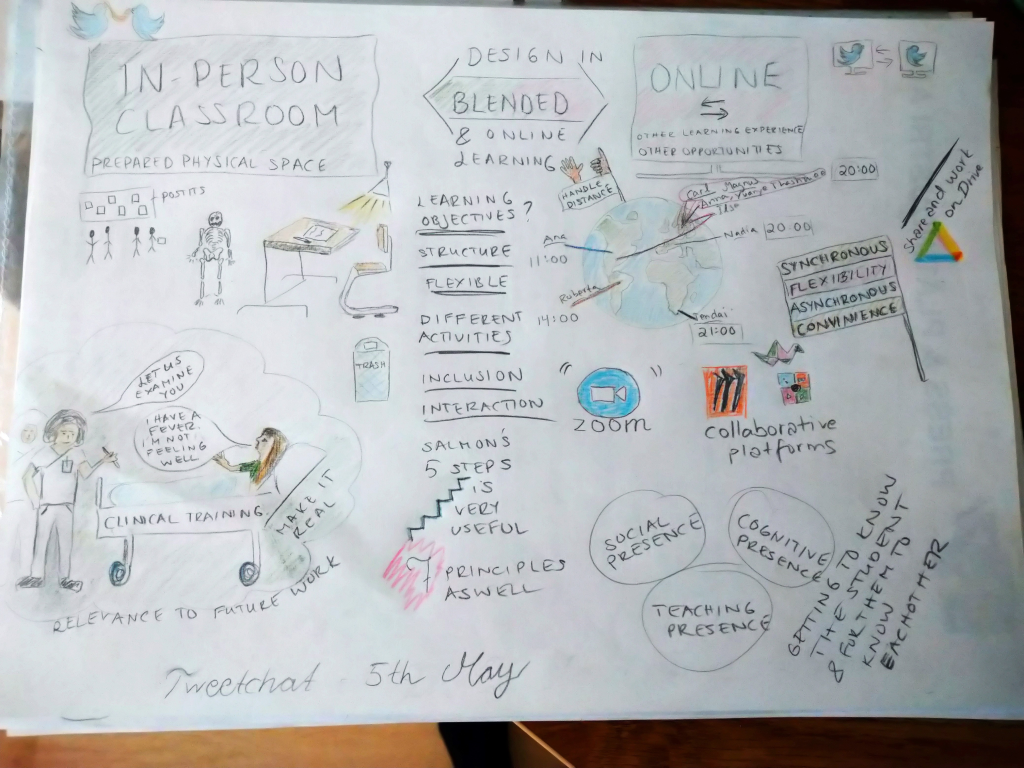 IN-PERSON
CLASSROOM
PREPARED PHYSICAL SPACE
POSTITS
DESIGN IN
BLENDED
& ONLINE
LEARNING
ONLINE
OTHER LEARNING EXPERIENCE
OTHER OPPORTUNITIES
LEARNING
OBJECTIVES?
STRUCTURE
FLEXIBLE
DIFFERENT
ACTIVITIES
INCLUSION
INTERACTION
SALMON'S
5 STEPS
IS
VERY
USEFUL
7 PRINCIPLES
ASWELL
TRASH
LET US
EXAMINE
YOU
I HAVE A
FEVER.
I'M NOT
FEELING
WELL
CLINICAL TRAINING
MAKE IT
REAL
RELEVANCE TO FUTURE WORK
HANDLE
DISTANCE
Carl Magnus
20:00
Ana
11:00
Nadia 20:00
Ruberta
14:00
Tendai
21:00
share and work
on Drive
SYNCHRONOUS
FLEXIBILITY
ASYNCHRONOUS
CONVINIENCE
zoom
collaborative
platforms
SOCIAL
PRESENCE
COGNITIVE
PRESENCE
TEACHING
PRESENCE
GETTING TO KNOW
THE STUDENT
& FOR THEM TO
KNOW
EACHOTHER
Tweetchat 5th May